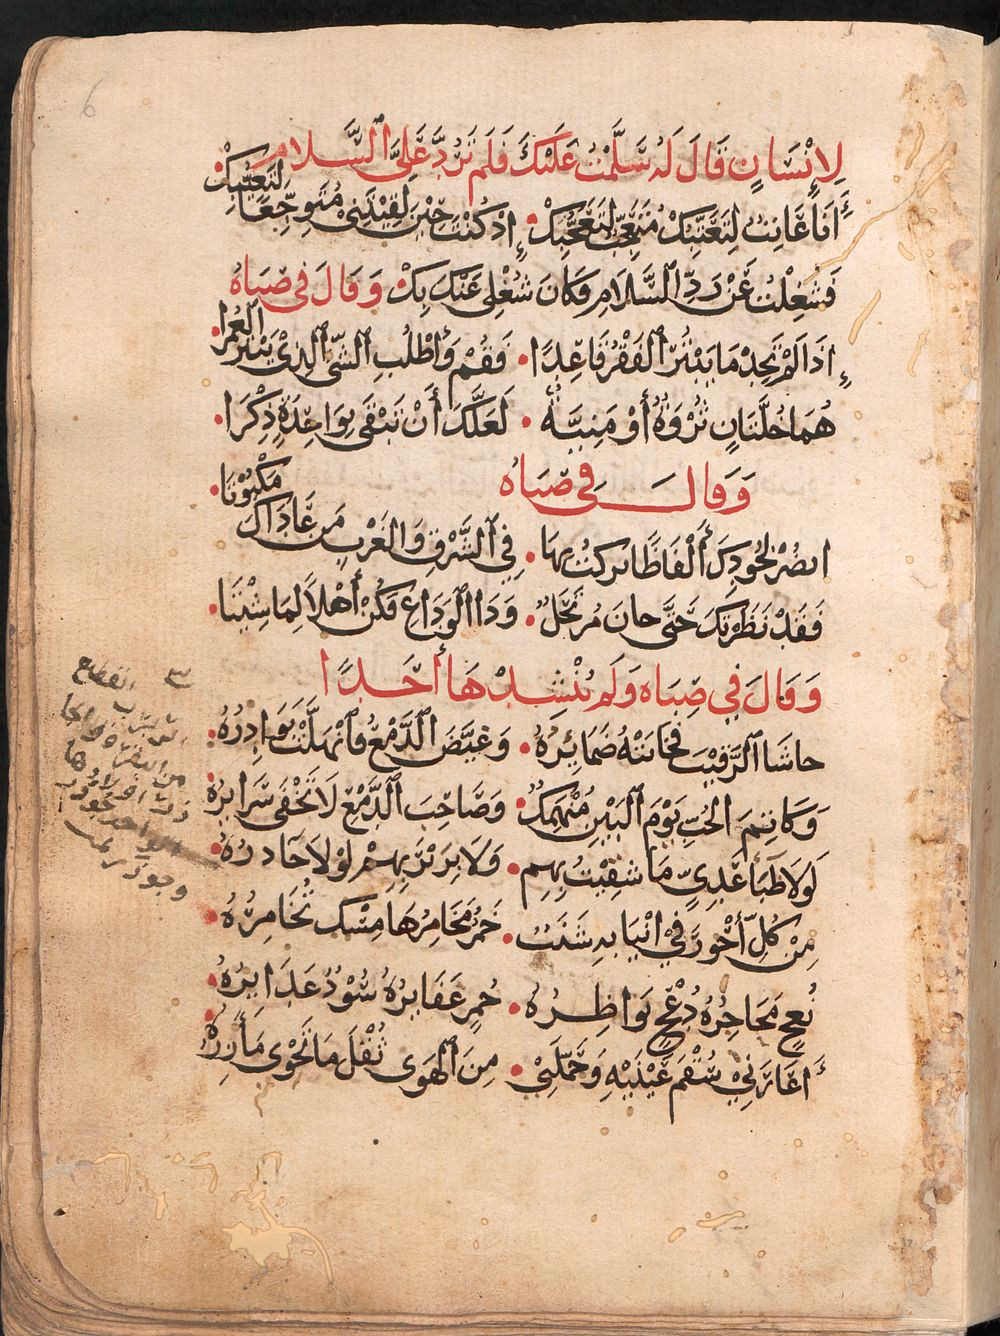 6
لِإِنْسَانٍ قَالَ لَهُ سَلَّمْتُ عَلَيْكَ فَلَمْ تَرُدَّ عَلَيَّ السَّلَامَ
أَنَا عَاتِبٌ لِتَعَتُّبِكْ مُتَعَجِّبٌ لِتَعَجُّبِكْ • إِذْ كُنْتُ حِيْنَ لَقِيْتَنِيْ مُتَوَجِّعًا لِتَغَيُّبِكْ •
فَشُغِلْتُ عَنْ رَدِّ السَّلَامِ وَكَانَ شُغْلِي عَنْكَ بِكْ • وَقَالَ فِي صِبَاهُ
إِذَا لَمْ تَجِدْ مَا يَبْتُرُ الفَقْرَ قَاعِدًا • فَقُمْ وَأطْلُبِ الشَّيْ الَّذِيْ يَبْتُرُ العُمْرَا •
هُمَا خُلَّتَانِ ثَرْوَةٌ أَوْ مَنِيَّةٌ • لَعَلَّكَ أَنْ تَبْقَى بِوَاحِدَةٍ ذِكْرَا •
وَقَالَ فِي صِبَاهُ
انْصُرْ بِجُودِكَ أَلْفَاظًا تَرَكْتُ بِهَا • فِي الشَّرْقِ وَالغَرْبِ مَنْ عَادَاكَ مَكْبُوْتَا •
فَقَدْ نَظَرْتُكَ حَتَّى حَانَ مُرْتَحَلٌ • وَذَا الْوَدَاعُ فَكُنْ أَهْلاً لِمَا شِئْتَا •
وَقَالَ فِي صِبَاهُ وَلَمْ يُنْشِدْهَا أَحَدًا
حَاشَا الرَّقِيْبَ فَخَانَتْهُ ضَمَائِرُهُ • وَغَيَّضَ الدَّمْعَ فَانْهَلَّتْ بَوَادِرُهُ •
وَكَاتِمُ الحُبِّ يَوْمَ البَيْنِ مُنْهَتِكٌ • وَصَاحِبُ الدَّمْعِ لَا تَخْفَى سَرَائِرُهُ •
لَوْلَا ظِبَاءُ عَدِيٍّ مَا شَقِيْتُ بِهِمِ • وَلَا بِرَبْرَبِهِمْ لَوْلَا جَآذِرُهُ •
مِنْ كُلِّ أَحْوَرَ فِي أَنْيَابِهِ شَنَبٌ • خَمْرٌ مُخَامِرُهَا مِسْكٌ تُخَامِرُهُ •
نُعْجٍ مَحَاجِرُهُ دُعْجٍ نَوَاظِرُهُ • حُمْرٍ غَفَائِرُهُ سُوْدٌ غَدَائِرُهُ •
أَعَارَنِيْ سُقْمَ عَيْنَيْهِ وَحَمَّلَنِيْ • مِنَ الْهَوَى ثُقْلَ مَا تَحْوِى مَأَزِرُهُ •
القطع